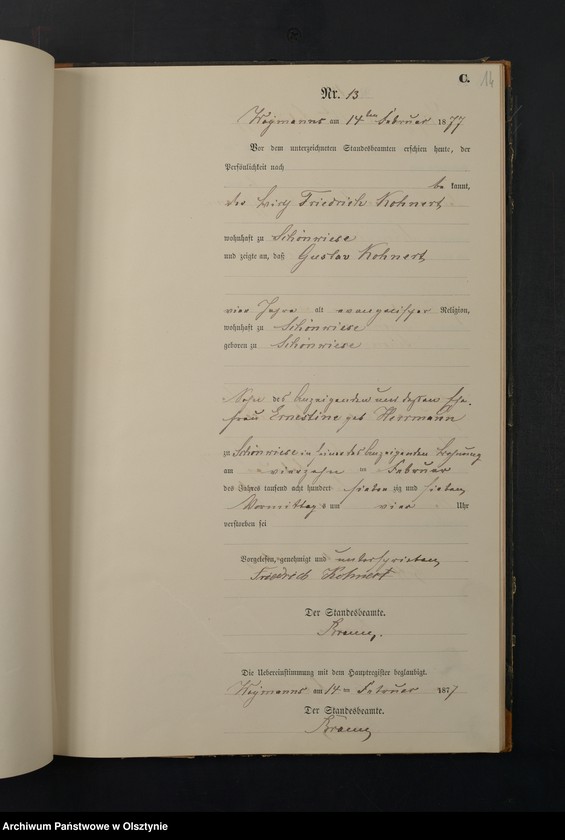 C. 14
Nr. 13
Weymanns am 14ten Februar 1877
Vor dem unterzeichneten Standesbeamten erschien heute, der
Persönlichkeit nach
be kannt,
der Wirth Friedrich Kohnert
wohnhaft zu Schönwiese
und zeigte an, daß Gustav Kohnert
vier Jahre alt evangelischer Religion,
wohnhaft zu Schönwiese
geboren zu Schönwiese
Sohn des Anzeigenden und dessen Ehe-
frau Ernestine geb Herrmann
zu Schönwiese in seiner des Anzeigenden Wohnung
am vierzehn ten Februar
des Jahres tausend acht hundert sieben zig und sieben
Vormittags um vier Uhr
verstorben sei
Vorgelesen, genehmigt und unterschrieben
Friedrich Kohnert
Der Standesbeamte.
Die Uebereinstimmung mit dem Hauptregister beglaubigt.
Weymanns am 14ten Februar 1877
Der Standesbeamte.
Archiwum Państwowe w Olsztynie